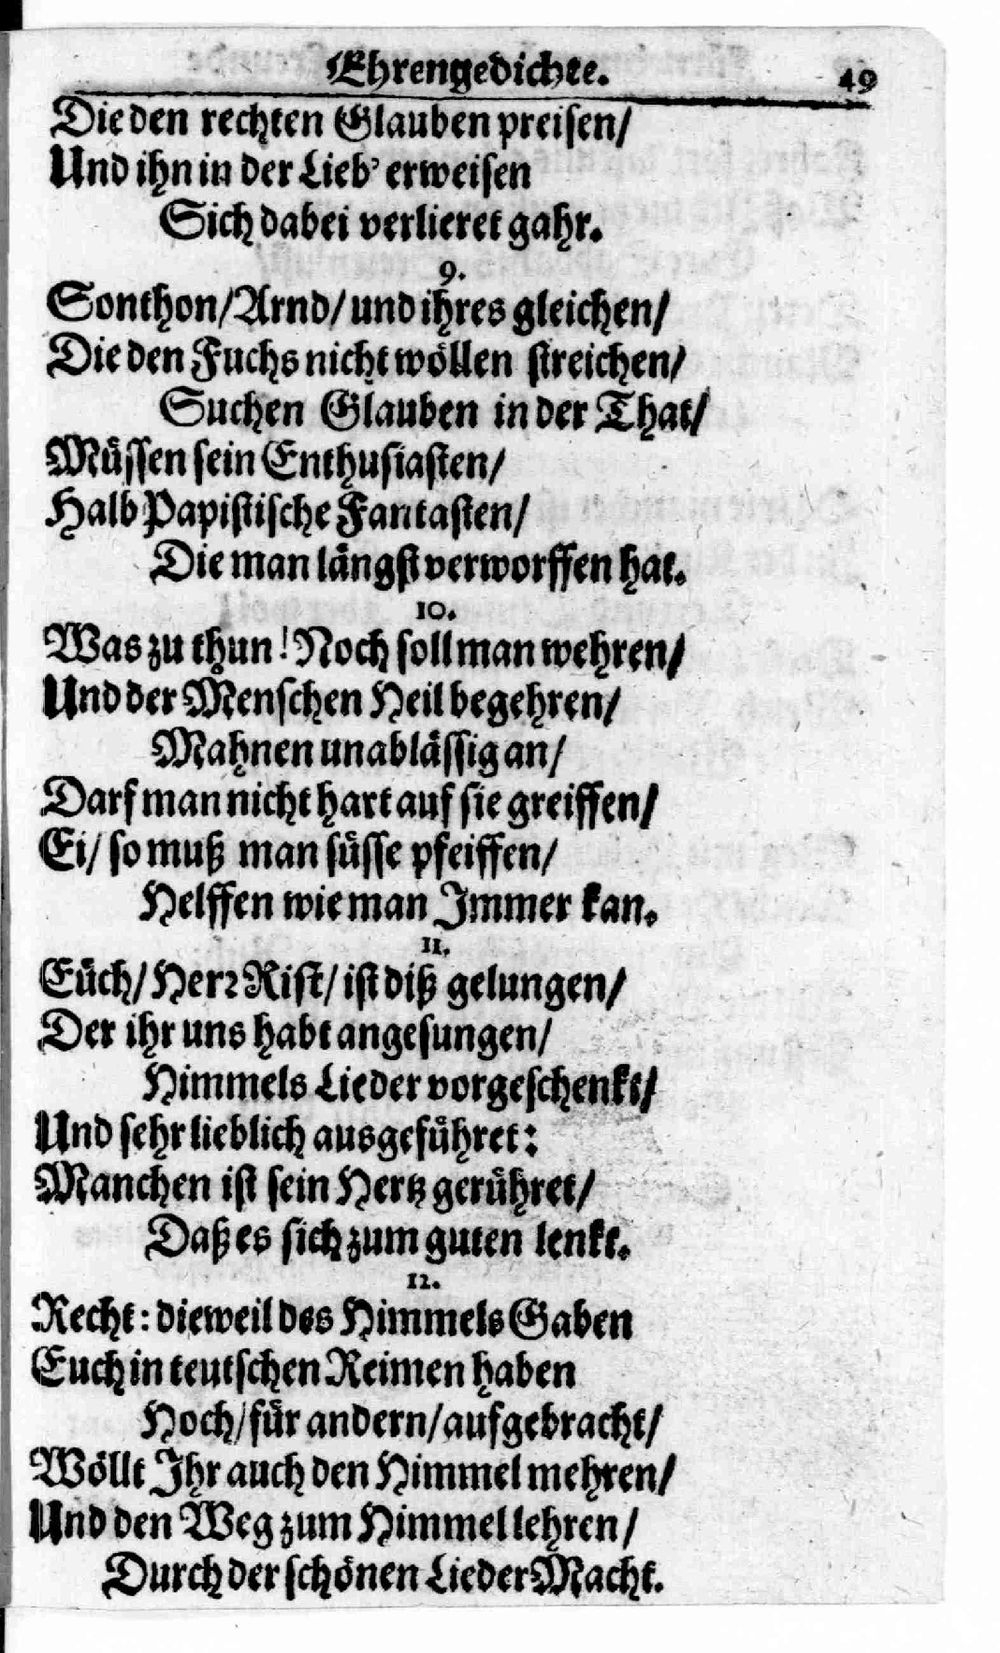 Ehrengedichte. 49
Die den rechten Glauben preisen/
Und ihn in der Lieb' erweisen
Sich dabei verlieret gahr.
9.
Sonthon/ Arnd/ und ihres gleichen/
Die den Fuchs nicht wöllen streichen/
Suchen Glauben in der That/
Müssen sein Enthusiasten/
Halb Papistische Fantasten/
Die man längst verworffen hat.
10.
Was zu thun! Noch soll man wehren/
Und der Menschen Heil begehren/
Mahnen unablässig an/
Darf man nicht hart auf sie greiffen/
Ei/ so muß man süsse pfeiffen/
Helffen wie man Immer kan.
11.
Eüch/ Herr Rist/ ist diß gelungen/
Der ihr uns habt angesungen/
Himmels Lieder vorgeschenkt/
Und sehr lieblich ausgeführet:
Manchen ist sein Hertz gerühret/
Daß es sich zum guten lenkt.
12.
Recht: dieweil des Himmels Gaben
Euch in teutschen Reimen haben
Hoch/ für andern/ aufgebracht/
Wöllt Ihr auch den Himmel mehren/
Und den Weg zum Himmel lehren/
Durch der schönen Lieder Macht.